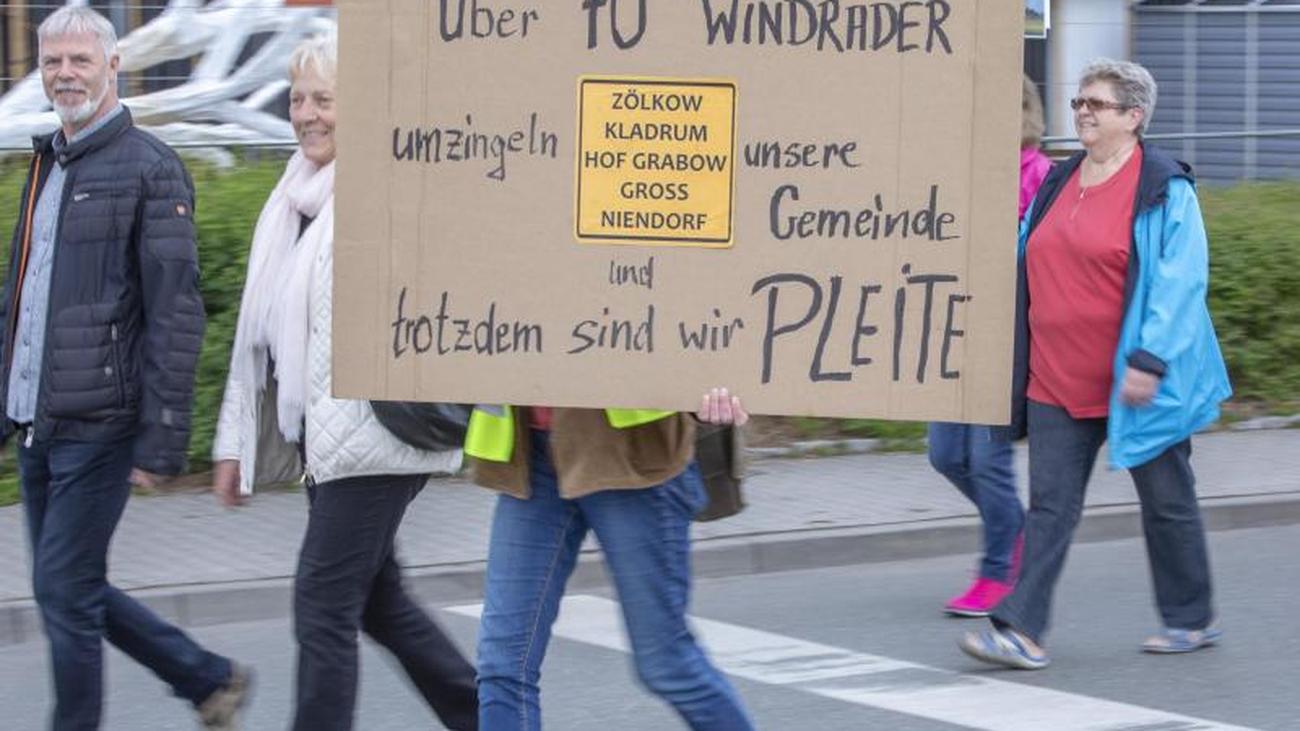 Über WINDRÄDER
umzingeln
ZÖLKOW
KLADRUM
HOF GRABOW
GROSS
NIENDORF
unsere
Gemeinde
und
trotzdem sind wir PLEiTE